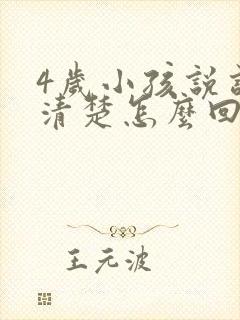 4歲小孩說
清楚怎麼回
王元波